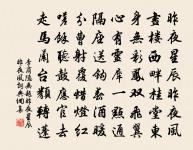 昨夜星辰昨夜風
畫樓西畔桂堂東
身無彩鳳雙飛翼
心有靈犀一點通
隔座送鈎春酒暖
分曹射覆蠟燈紅
嗟余聽鼓應官去
走馬蘭台類轉蓬
李商隱無題昨夜星辰
昨夜風詞典網集